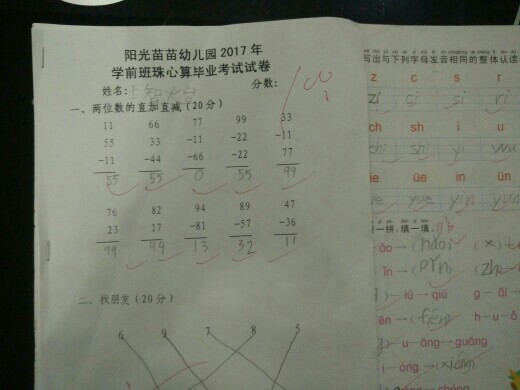 阳光苗苗幼儿园 2017 年
学前班珠心算毕业考试试卷
姓名: 分数: 100
一、两位数的直加直减(20分)
11 66 77 99 33
55 33 -11 -22 -11
-11 -44 -66 -22 77
55 55 0 55 99
76 82 94 89 47
23 17 -81 -57 -36
99 99 13 32 11
二、我朋友(20分)
6 9 7 8 5
写出与下列字母发音相同的整体认读
z c s r
zi ci si ri
ch sh i u
chi shi yi wu
ie üe in ün
ye yue yin yun
拼一拼,填一填。
ǎo → (hǎo) (x)
īn → (pīn) (zh
) — iú → qiú g — āi →
ēn → (fēn) h — u — ǒ
) u — āng → guāng
i — óng → (xióng)